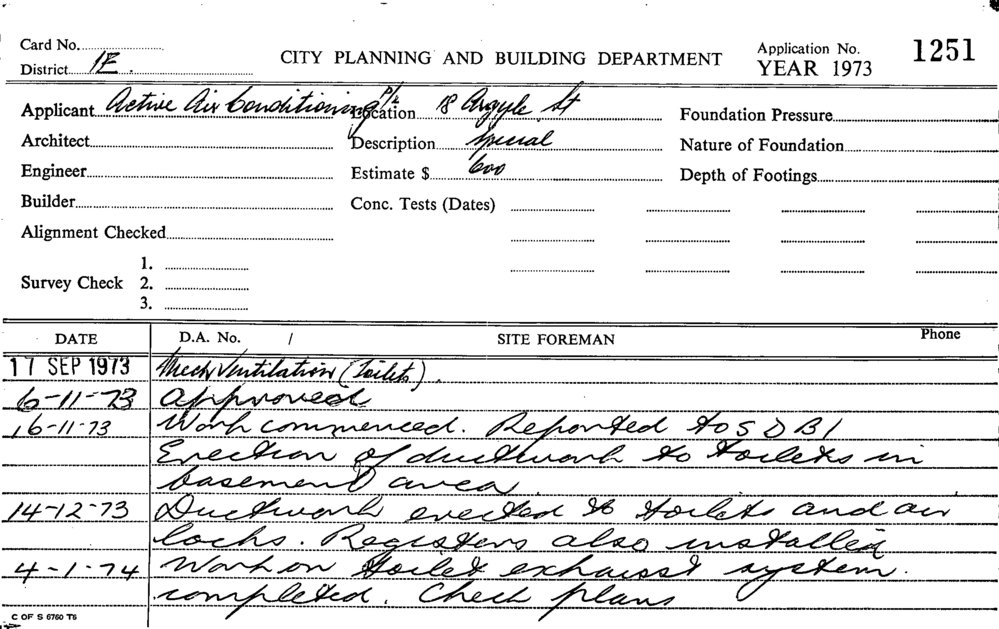 Card No.
CITY PLANNING AND BUILDING DEPARTMENT
Application No. 1251
District 1E.
YEAR 1973
Applicant Active Air Conditioning P/L Location 18 Argyle St Foundation Pressure
Architect Description Special Nature of Foundation
Engineer Estimate $ 600 Depth of Footings
Builder Conc. Tests (Dates)
Alignment Checked
1.
Survey Check 2.
3.
DATE D.A. No. / SITE FOREMAN Phone
17 SEP 1973 Mech Ventilation (Toilets).
6-11-73 Approved
16-11-73 Work commenced. Reported to S D B I
Erection of ductwork to toilets in
basement area.
14-12-73 Ductwork erected to toilets and air
locks. Registers also installed
4-1-74 Work on toilet exhaust system.
completed. Check plans
C OF S 6760 T6